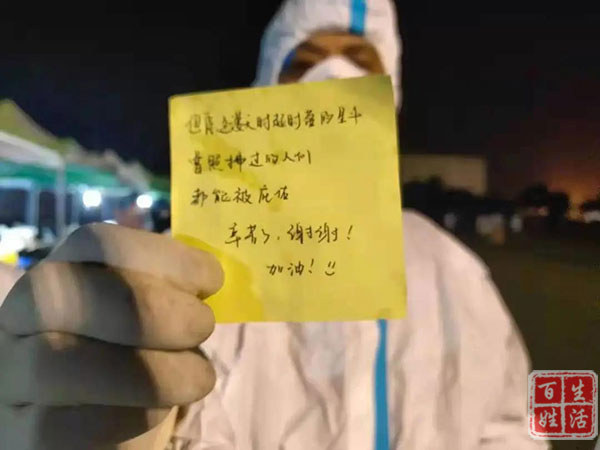 但愿这漫天时隐时落的星斗
曾照拂过的人们
都能被庇佑
辛苦了，谢谢！
加油！
百姓生活